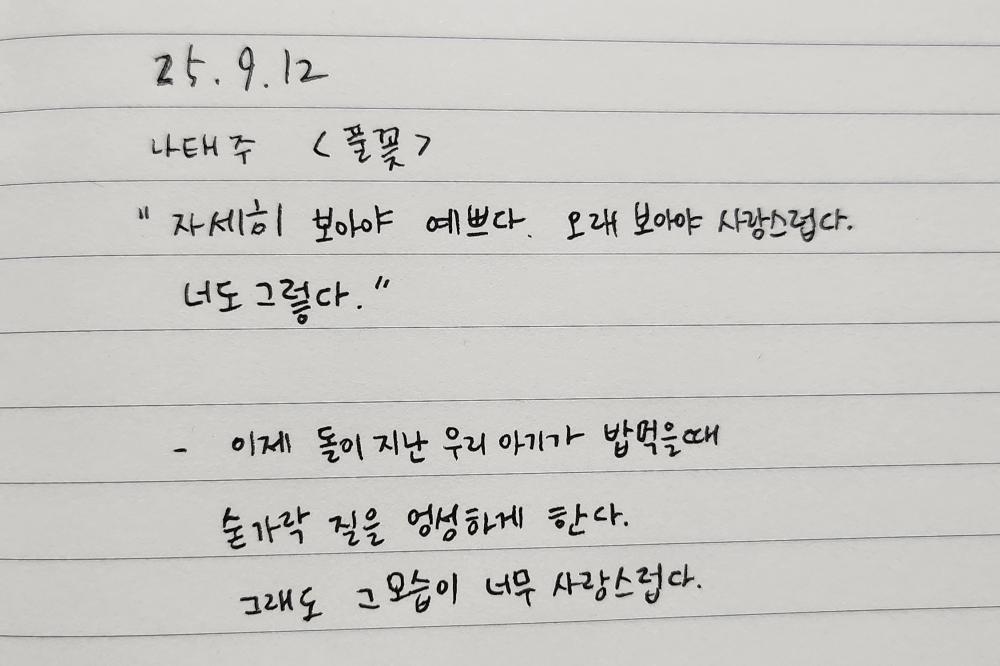 25.9.12
나태주 <풀꽃>
"자세히 보아야 예쁘다. 오래 보아야 사랑스럽다.
너도 그렇다."
- 이제 돌이 지난 우리 아기가 밥먹을때
숟가락 질을 엉성하게 한다.
그래도 그 모습이 너무 사랑스럽다.